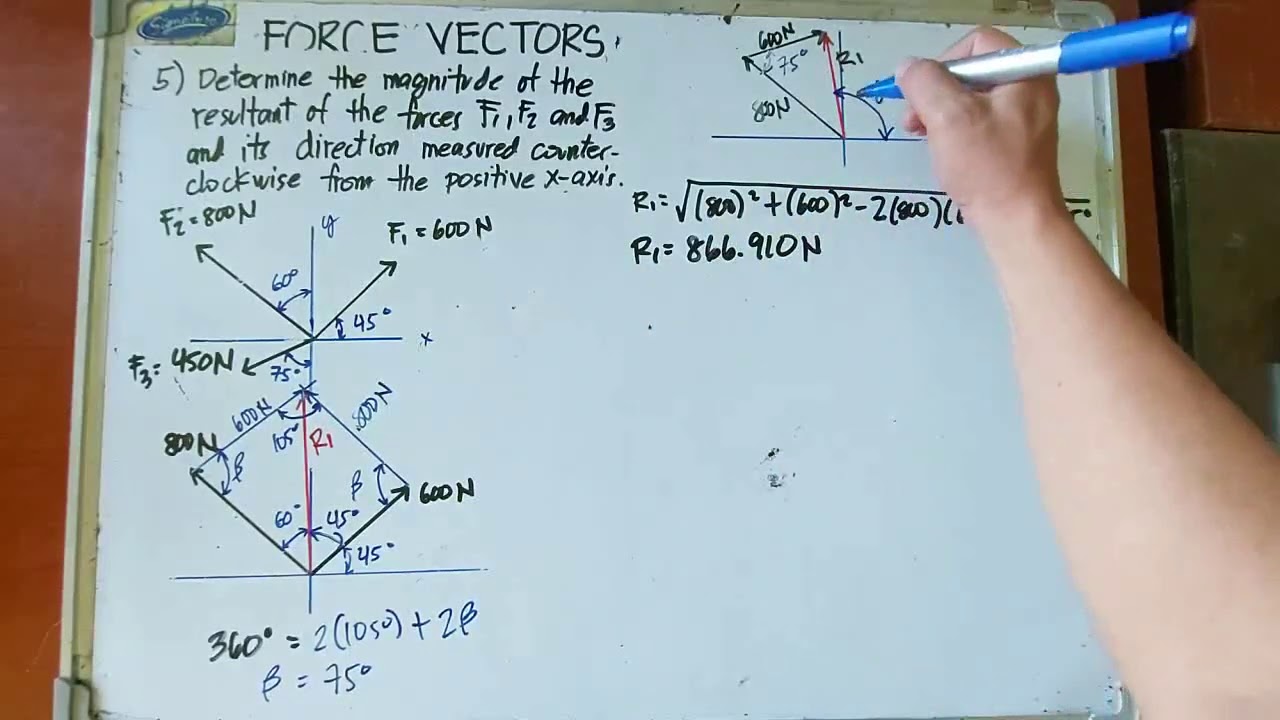 Signature
FORCE VECTORS
5) Determine the magnitude of the
resultant of the forces F1, F2 and F3
and its direction measured counter-
clockwise from the positive x-axis.
F2 = 800N
y
F1 = 600N
60°
45°
x
F3 = 450N
75°
600N
800N
105°
R1
800N
β
β
600N
60°
45°
45°
360° = 2(105°) + 2β
β = 75°
600N
75°
R1
800N
R1 = √(800)² + (600)² - 2(800)(
R1 = 866.910N